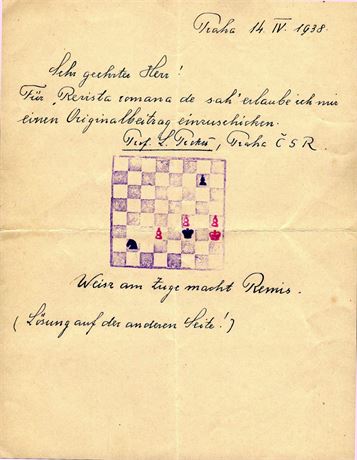 Praha 14. IV. 1938.
Sehr geehrter Herr!
Für „Revista romana de sah" erlaube ich mir
einen Originalbeitrag einzuschicken.
Prof. L. Prokeš, Praha ČSR.
Weiss am Zuge macht Remis.
(Lösung auf der anderen Seite!)